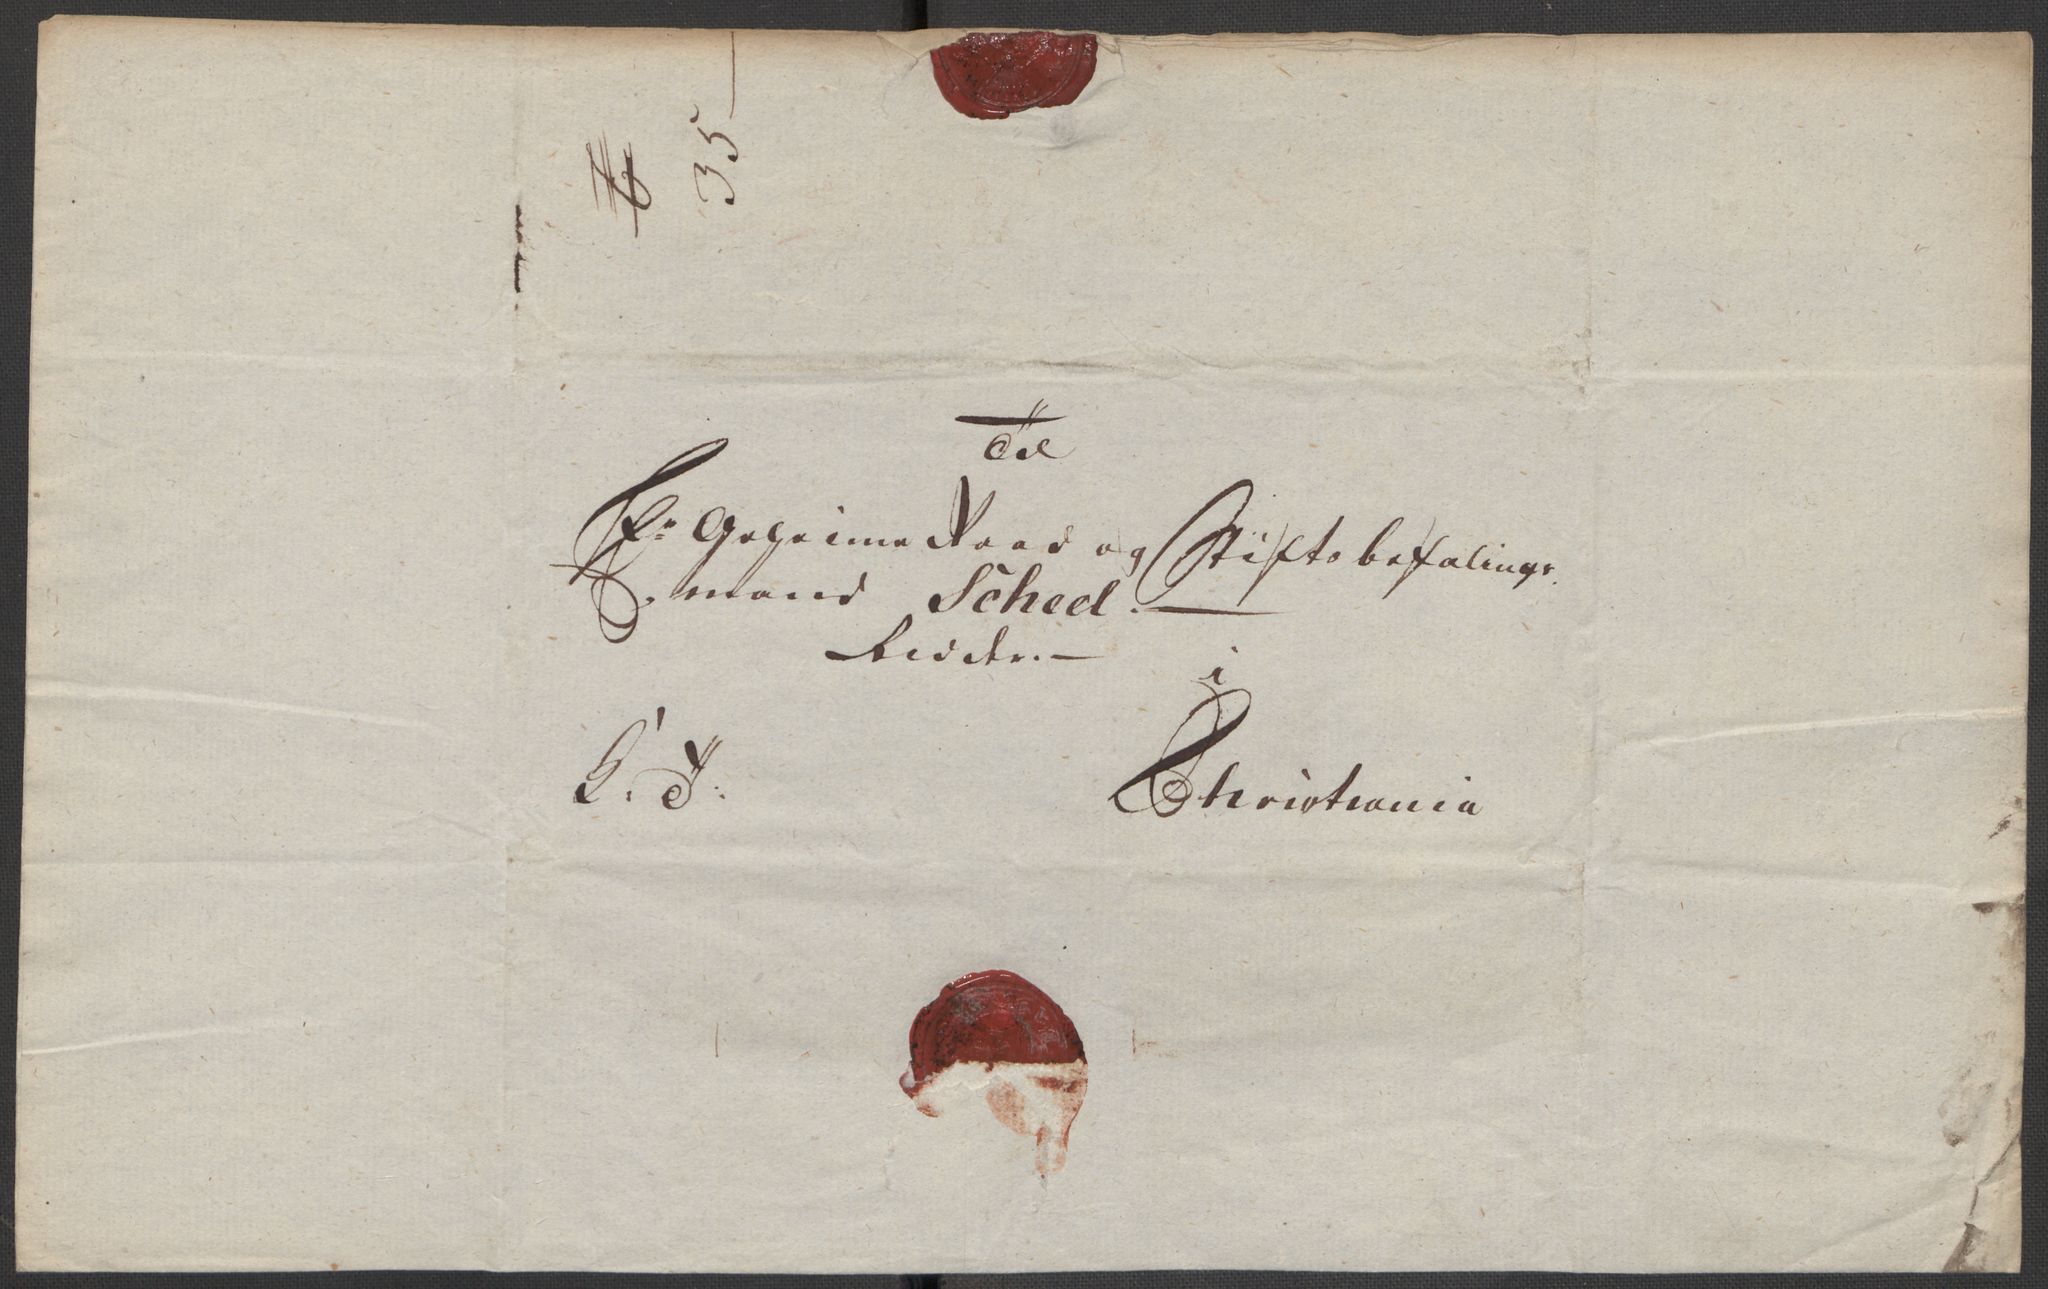 35
Til
Hr Geheime Raad og Stiftsbefalings-
mand Scheel.
Ridder.
i
K. T.
Christiania